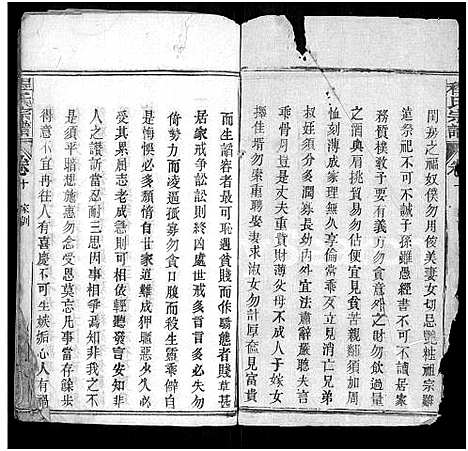 程氏宗譜 卷
閨房之福奴僕勿用俊美妻女切忌艷粧祖宗雖
遠祭祀不可不誠子孫雖愚經書不可不讀居家
務質樸敎子要有義方勿貪意外之財勿飲過量
之酒與肩挑貿易勿佔便宜見貧苦親鄰須多溫
恤刻薄成家理無久享倫常乖舛立見消亡兄弟
叔姪須分多潤寡長幼內外宜法肅辭嚴聽婦言
乖骨肉豈是丈夫重貲財薄父母不成人子嫁女
擇佳壻勿索重聘娶妻求淑女勿計厚奩見富貴
而生諂容者最可恥遇貧賤而作驕態者賤莫甚
居家戒爭訟訟則終凶處世戒多言言多必失勿
恃勢力而凌逼孤寡勿貪口腹而殺生禽乖僻自
是悔悞必多頹惰自甘家道難成狎暱惡少久必
受其累屈志老成急則可相依輕聽發言安知非
人之譖訴當忍耐三思因事相爭焉知非我之不
是須平暗想施惠勿念受恩莫忘凡事當存餘步
得意不宜再往人有喜慶不可生嫉妬心人有禍
程氏宗譜 卷十 家訓